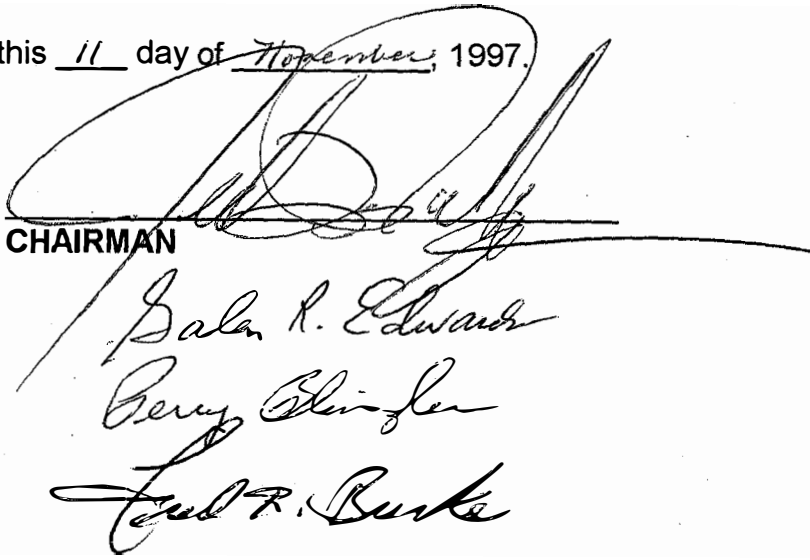 this 11 day of November, 1997.
CHAIRMAN
Galen R. Edwards
Perry
Fred R. Burke